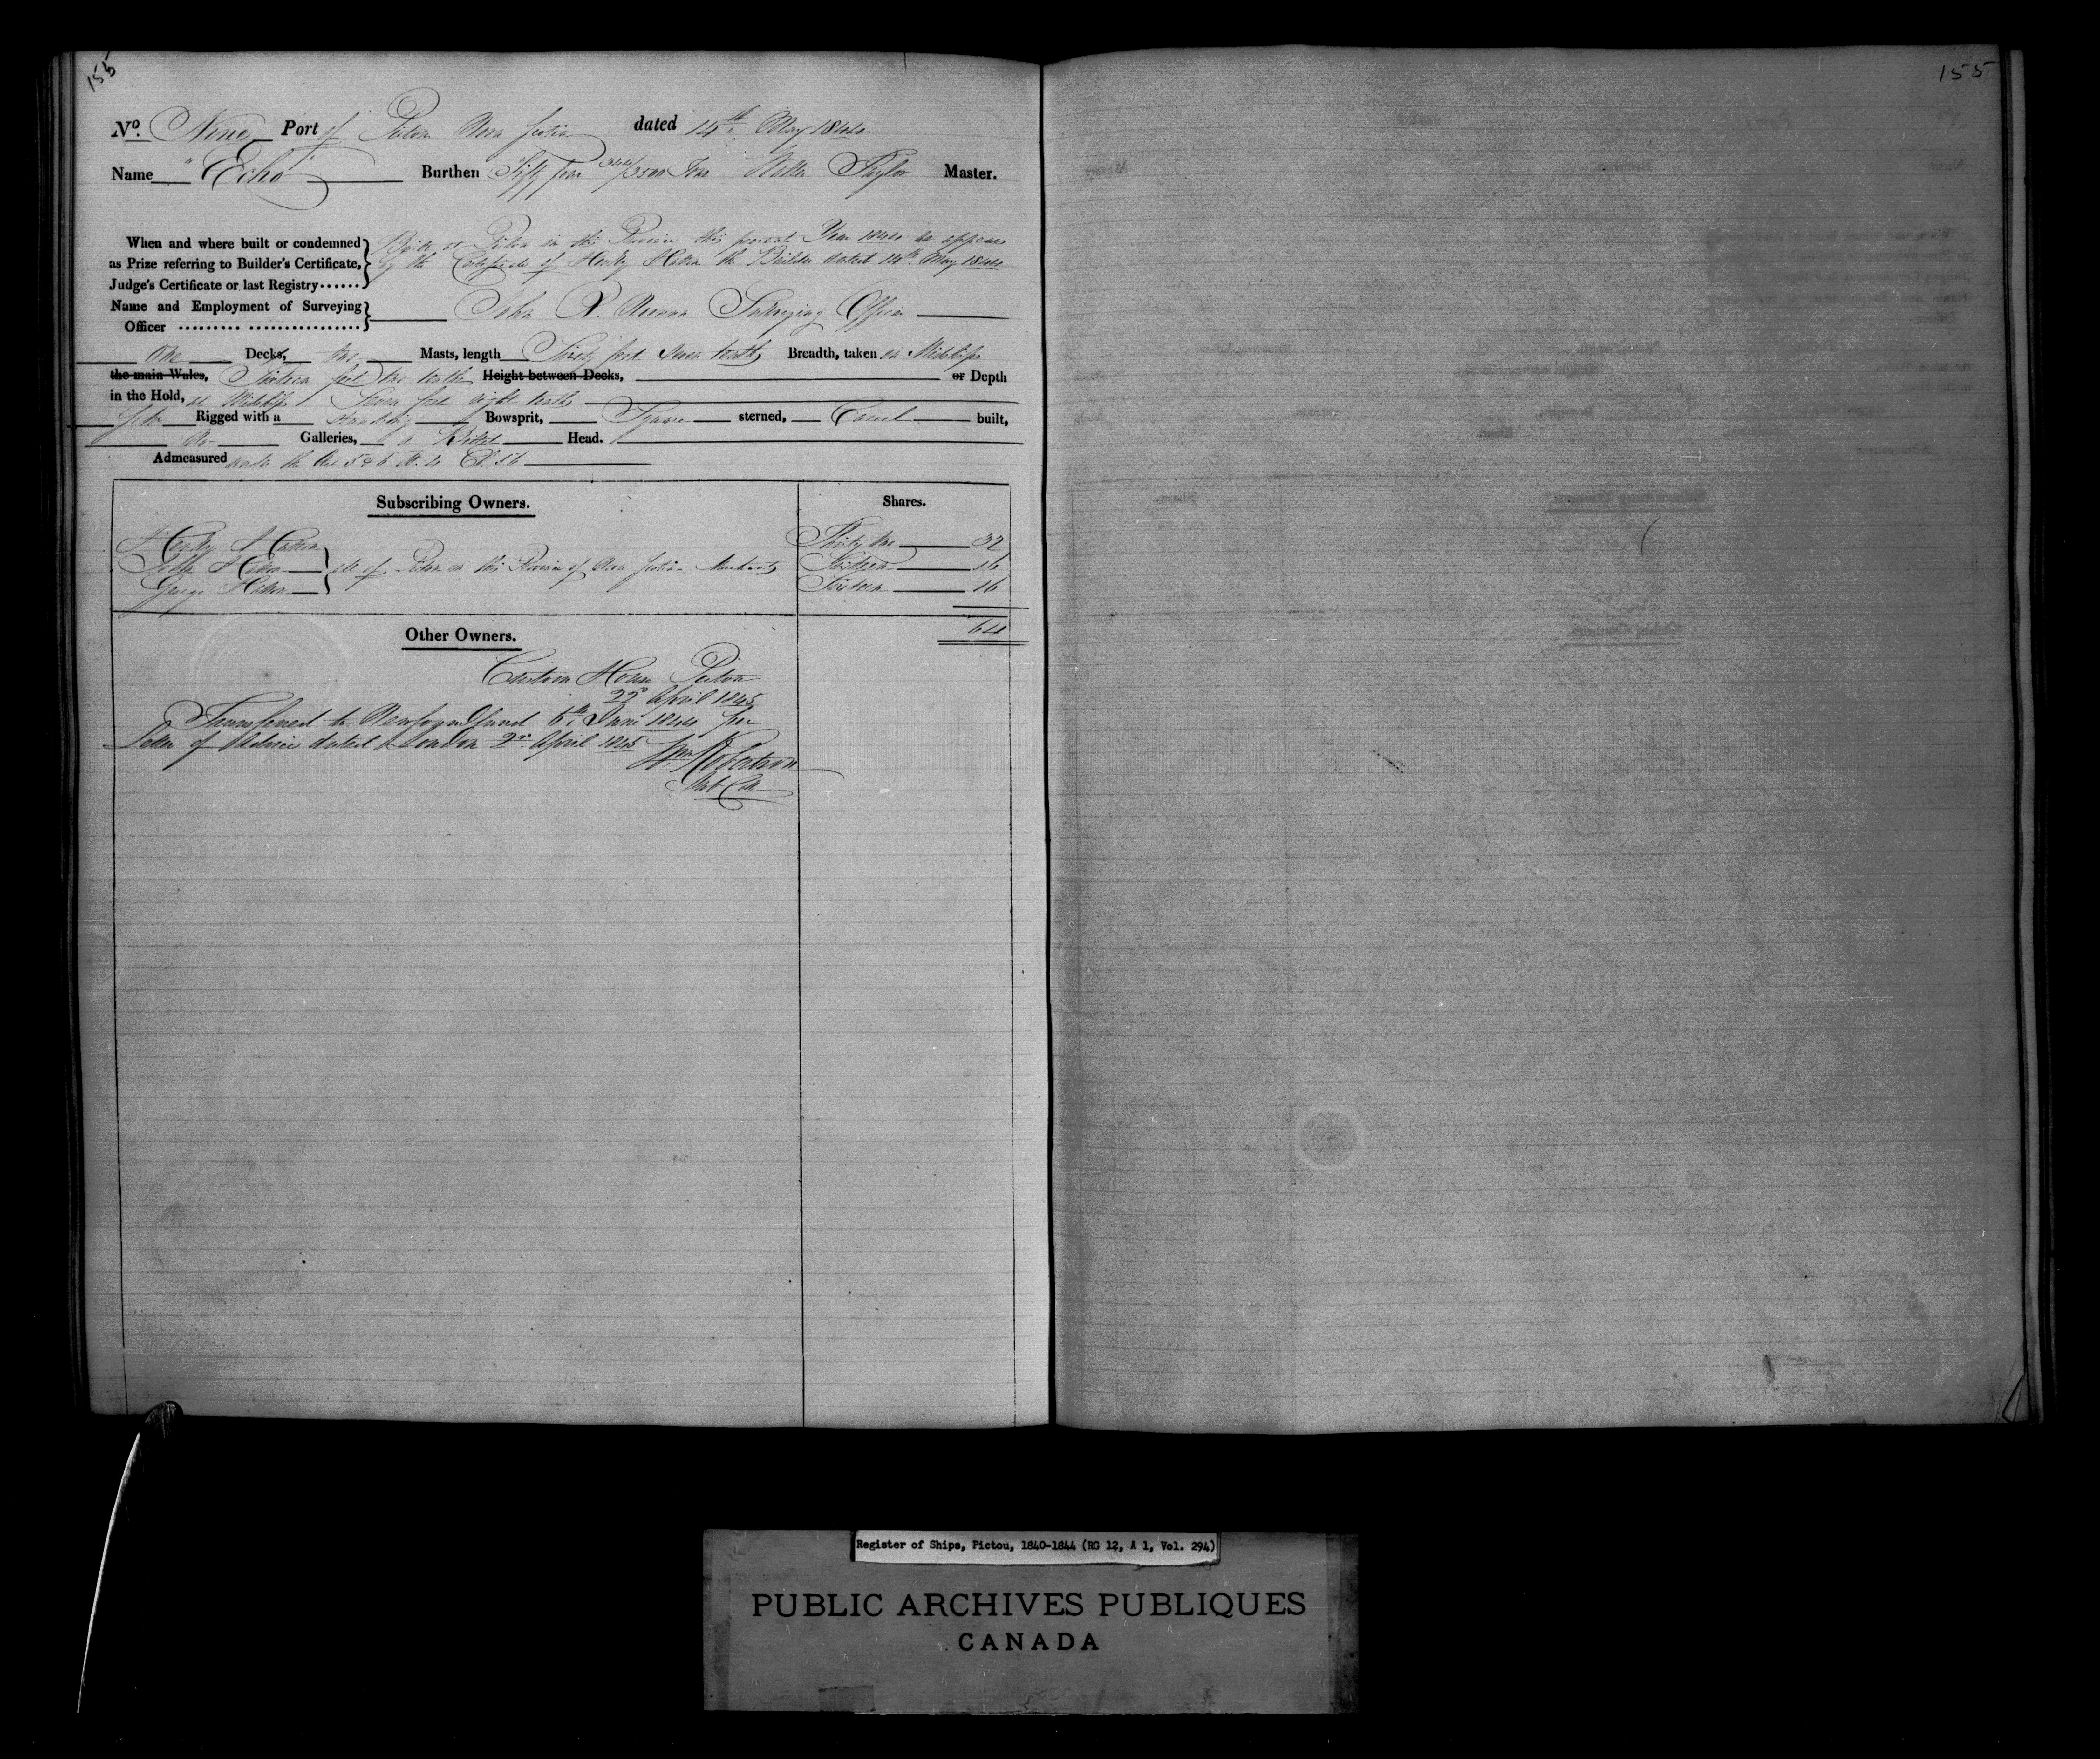 155
155
No. Nine Port of Pictou Nova Scotia dated 14th May 1844
Name "Echo" Burthen Fifty four /3500 Tons Walter Taylor Master.
When and where built or condemned
as Prize referring to Builder's Certificate,
Judge's Certificate or last Registry......
Built at Pictou in this Province this present Year 1844 as appears
by the Certificate of Henry Hatton the Builder dated 14th May 1844
Name and Employment of Surveying
Officer
John Surveying Officer
One Deck, two Masts, length feet seven tenths Breadth, taken in Midships
the main Wales, Sixteen feet two tenths Height between Decks, or Depth
in the Hold, at Midships Seven feet eight tenths
Rigged with a standing Bowsprit, Square sterned, Carvel built,
No Galleries, a Billet Head.
Admeasured under the Act 5 & 6 W. 4 Ch. 56
Subscribing Owners. Shares.
Henry Hatton Thirty two 32
John Hatton all of Pictou in this Province of Nova Scotia Merchants Sixteen 16
George Hatton Sixteen 16
64
Other Owners.
Custom House Pictou
22d April 1845
Transferred to Newfoundland 6th June 1844 per
Letter of Advice dated London 2d April 1845
Wm Robertson
Register of Ships, Pictou, 1840-1844 (RG 12, A 1, Vol. 294)
PUBLIC ARCHIVES PUBLIQUES
CANADA